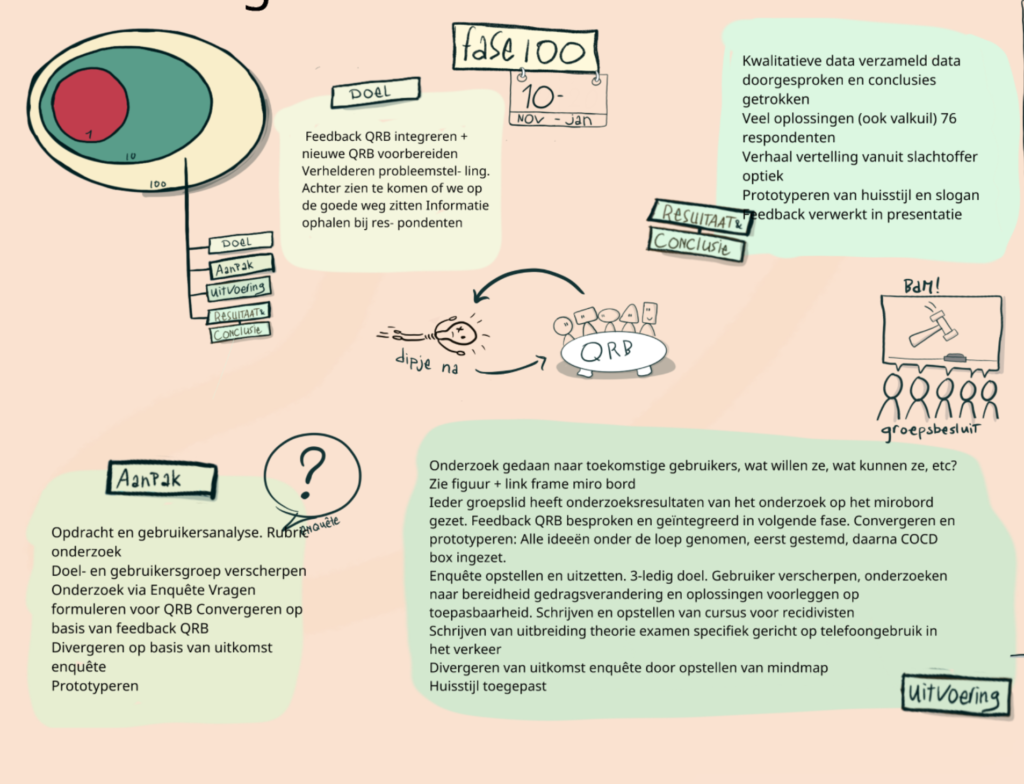 fase 100
10-
NOV - Jan
1
10
100
DOEL
AanPak
UitVoering
RESULTAAT&
CONCLUSIE
DOEL
Feedback QRB integreren +
nieuwe QRB voorbereiden
Verhelderen probleemstel- ling.
Achter zien te komen of we op
de goede weg zitten Informatie
ophalen bij res- pondenten
Kwalitatieve data verzameld data
doorgesproken en conclusies
getrokken
Veel oplossingen (ook valkuil) 76
respondenten
Verhaal vertelling vanuit slachtoffer
optiek
Prototyperen van huisstijl en slogan
Feedback verwerkt in presentatie
RESULTAAT&
CONCLUSIE
dipje na
QRB
BAM!
groepsbesluit
AanPak
?
enquête
Opdracht en gebruikersanalyse. Rubric
onderzoek
Doel- en gebruikersgroep verscherpen
Onderzoek via Enquête Vragen
formuleren voor QRB Convergeren op
basis van feedback QRB
Divergeren op basis van uitkomst
enquête
Prototyperen
Onderzoek gedaan naar toekomstige gebruikers, wat willen ze, wat kunnen ze, etc?
Zie figuur + link frame miro bord
Ieder groepslid heeft onderzoeksresultaten van het onderzoek op het mirobord
gezet. Feedback QRB besproken en geïntegreerd in volgende fase. Convergeren en
prototyperen: Alle ideeën onder de loep genomen, eerst gestemd, daarna COCD
box ingezet.
Enquête opstellen en uitzetten. 3-ledig doel. Gebruiker verscherpen, onderzoeken
naar bereidheid gedragsverandering en oplossingen voorleggen op
toepasbaarheid. Schrijven en opstellen van cursus voor recidivisten
Schrijven van uitbreiding theorie examen specifiek gericht op telefoongebruik in
het verkeer
Divergeren van uitkomst enquête door opstellen van mindmap
Huisstijl toegepast
UitVoering